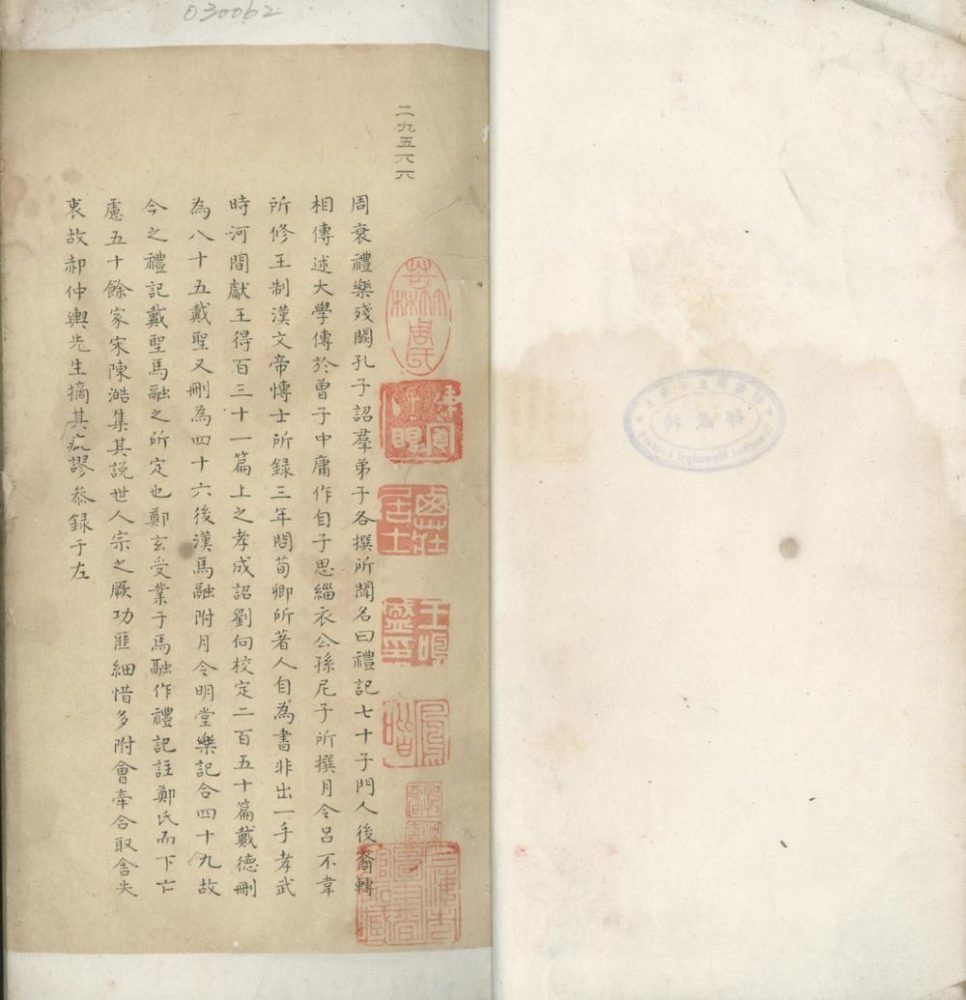 030062
二九五六六
周衰禮樂殘闕孔子詔羣弟子各撰所聞名曰禮記七十子門人後裔轉
相傳述大學傳於曾子中庸作自子思緇衣公孫尼子所撰月令呂不韋
所修王制漢文帝博士所録三年問荀卿所著人自為書非出一手孝武
時河間獻王得百三十一篇上之孝成詔劉向校定二百五十篇戴德刪
為八十五戴聖又刪為四十六後漢馬融附月令明堂樂記合四十九故
今之禮記戴聖馬融之所定也鄭玄受業于馬融作禮記註鄭氏而下亡
慮五十餘家宋陳澔集其説世人宗之厥功匪細惜多附會牽合取舍失
衷故郝仲輿先生摘其疵謬叅録于左
鹵莊居士
王鳴盛印
鳳喈